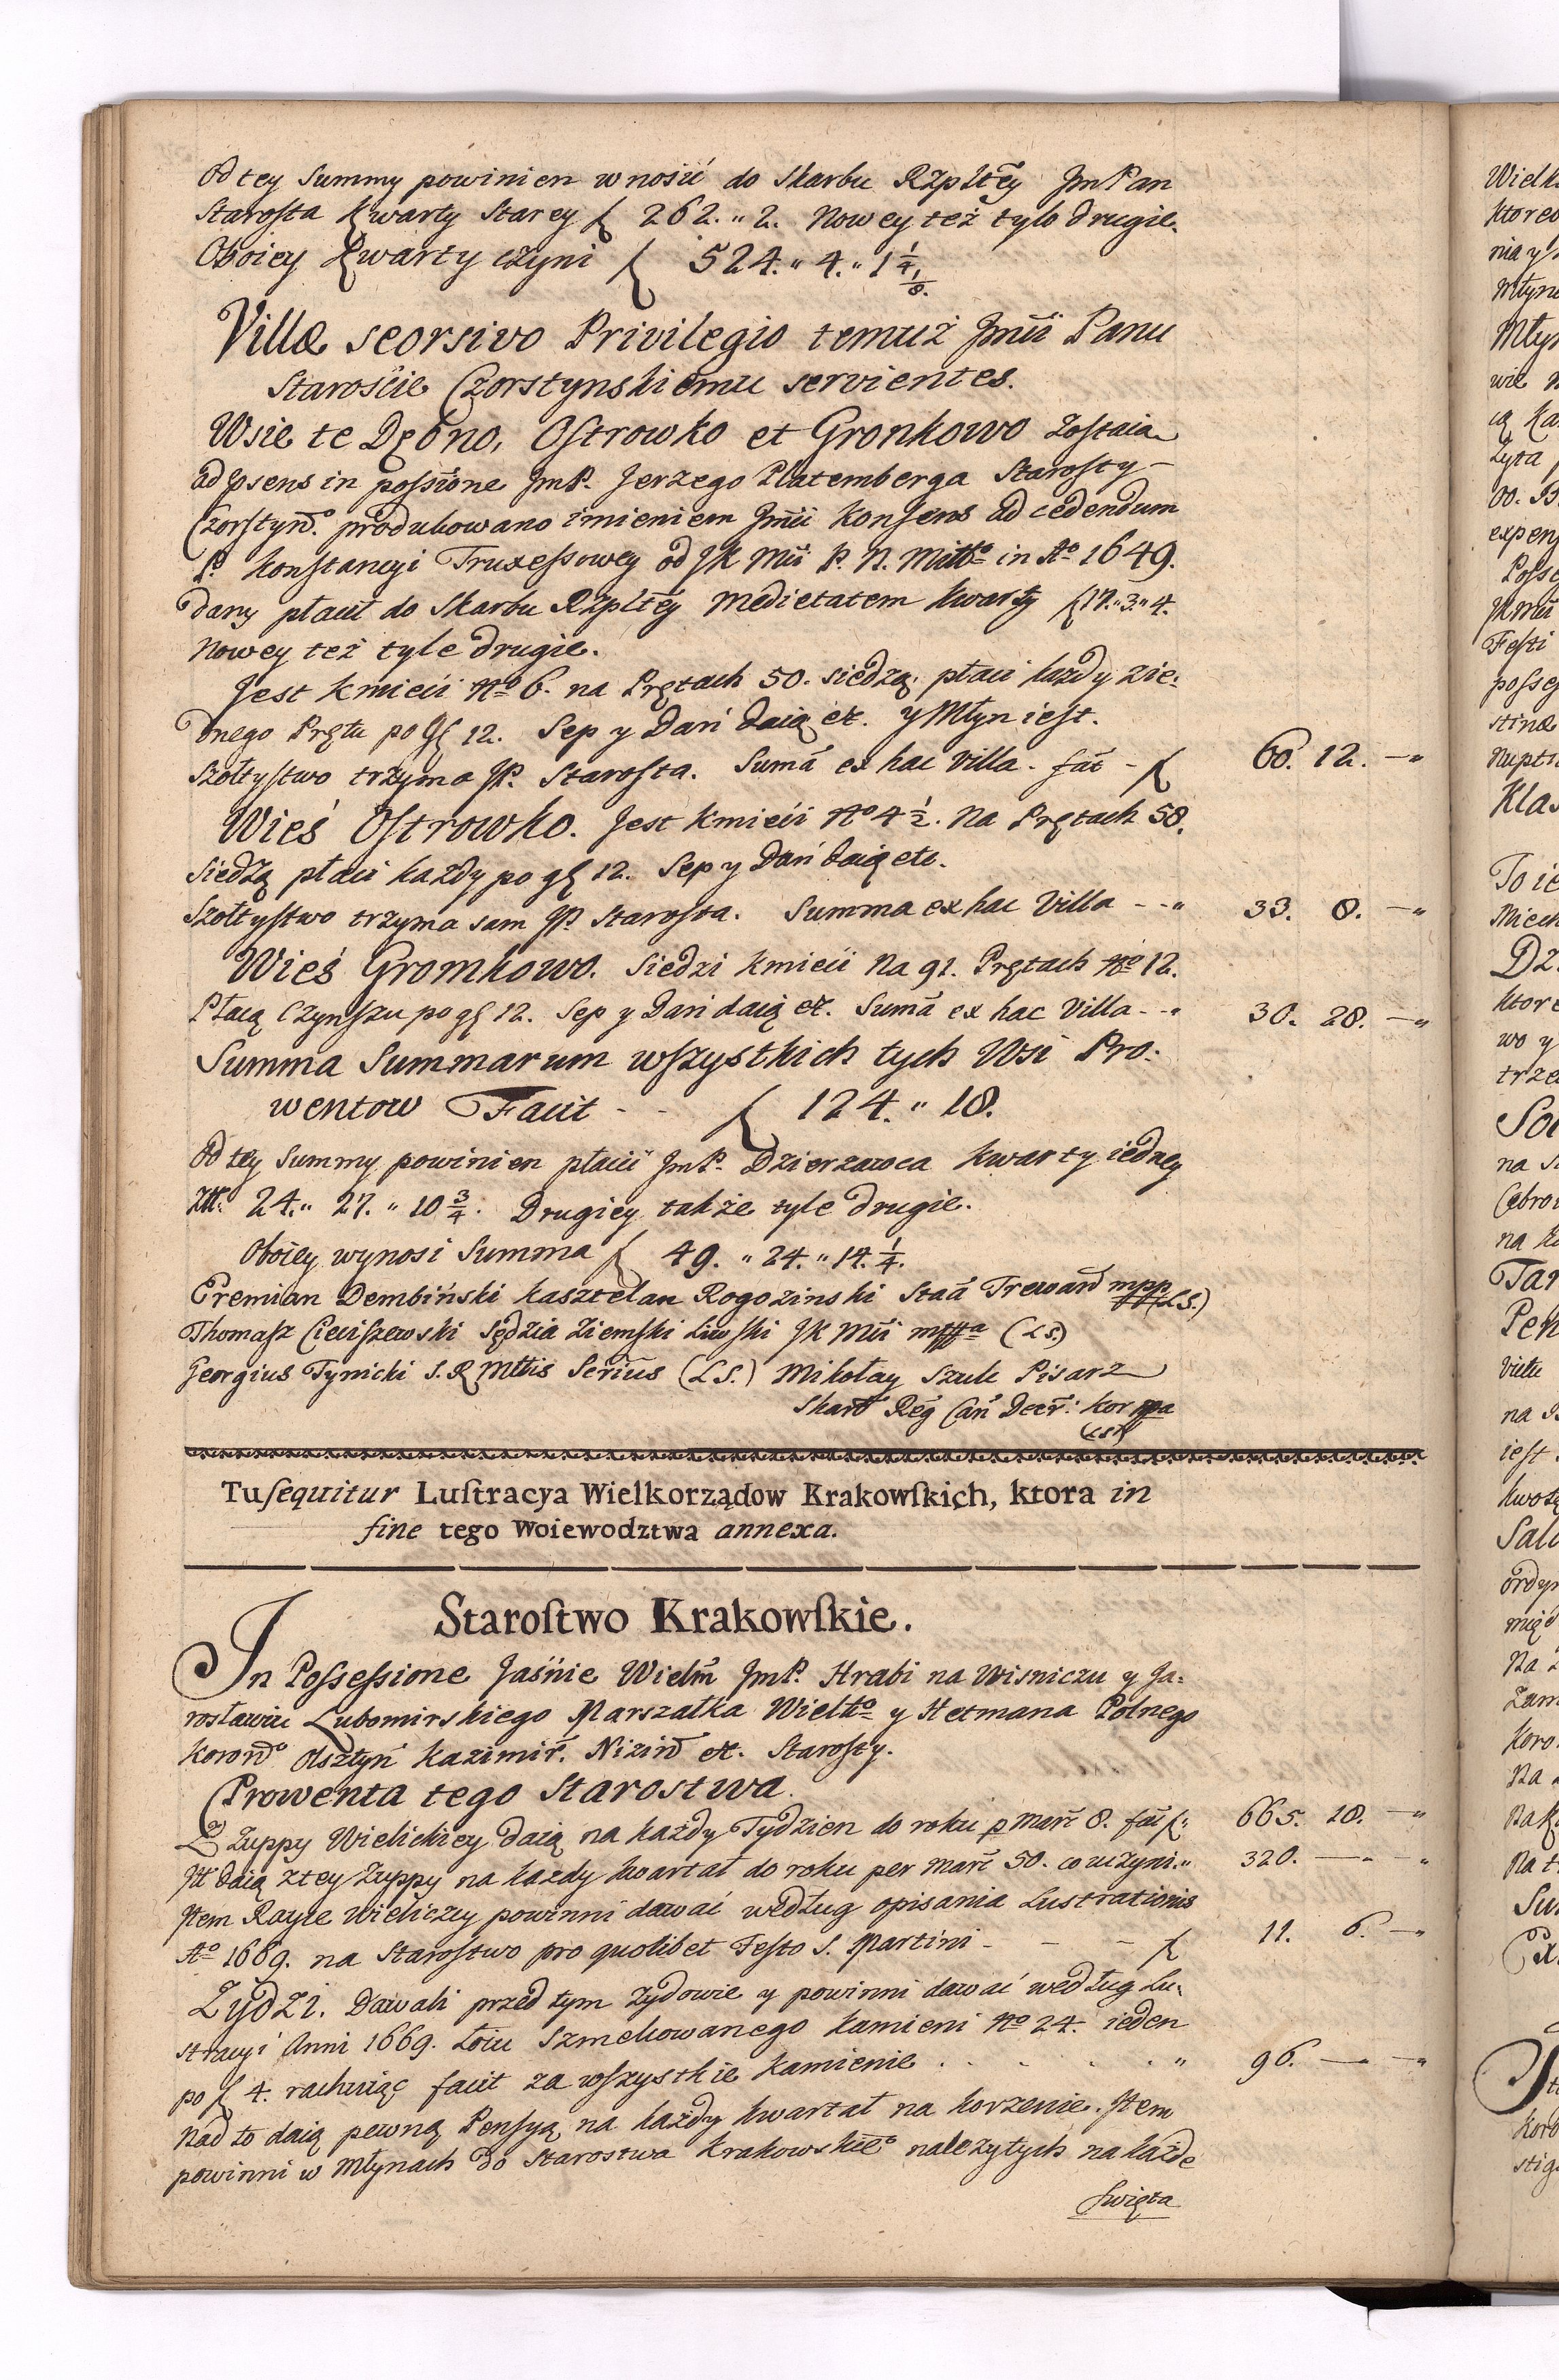 Od tey Summy powinien wnosić do Skarbu Rzpltey JmPan
Starosta Kwarty Starey f 262. „ 2. Nowey też tylo drugie.
Oboiey Kwarty czyni f 524. „ 4. „ 1 1/4 1/8.
Villæ seorsivo Privilegio temuż Jmći Panu
Staroście Czorstynskiemu servientes.
Wsie te Dębno, Ostrowko et Gronkowo zostaią
ad psens in possione JmP. Jerzego Platemberga Starosty
Czorstyno. produkowano imieniem Jmći Konsens ad cedendum
P. Konstancyi Truxessowey od JK Mći P. N. Miłło in Ao 1649.
dany płacił do Skarbu Rzpltey medietatem kwarty f 17. „ 3. „ 4.
Nowey też tyle drugie.
Jest Kmieci No 6. na Prętach 50. siedzą, płaci każdy zie-
dnego Prętu po gł 12. Sep y Dań daią etc. y Młyn iest.
Szołtystwo trzyma JP. Starosta. Sumã ex hac Villa. fat - f 60. 12. — „
Wieś Ostrowko. Jest Kmieci No 4 1/2. Na Prętach 58.
Siedzą płaci każdy po gł 12. Sep y Dań daią etc.
Szołtystwo trzyma sam JP. Starosta. Summa ex hac Villa - - „ 33. 8. — „
Wieś Gromkowo. Siedzi Kmieci Na 91. Prętach No 12.
Płacą Czynszu po gł 12. Sep y Dań daią etc. Sumã ex hac Villa - - „ 30. 28. — „
Summa Summarum wszystkich tych Wsi Pro-
wentow Facit - - f 124. „ 18.
Od tey Summy powinien płacić JmP. Dzierzawca Kwarty iedney
Złł. 24. „ 27. „ 10 3/4. Drugiey także tyle drugie.
Oboiey wynosi Summa f 49. „ 24. „ 14. 1/4.
Eremian Dembiński Kasztelan Rogozinski Staã Treward mpp (LS.)
Thomasz Cieciszewski Sędzia Ziemski Liwski JK Mći mppa (LS.)
Georgius Tynicki S. R Mttis Serius (LS.) Mikołay Szulc Pisarz
Skarb Reg Can Decr: Kor mpa
(LSR)
Tu sequitur Lustracya Wielkorządow Krakowskich, ktora in
fine tego Woiewodztwa annexa.
Starostwo Krakowskie.
In Possessione Jaśnie Wielm JmP. Hrabi na Wisniczu y Ja-
rosławiu Lubomirskiego Marszałka Wielko y Hetmana Polnego
Korono Olsztyń Kazimir. Nizin etc. Starosty.
Prowenta tego Starostwa.
Z Żuppy Wielickiey daią na każdy Tydzien do roku p Marc 8. fat f. 665. 18. — „
It daią z tey Żuppy na kazdy kwartał do roku per marc 50. co uczyni. „ 320. — „ — „
Item Rayce Wieliczcy powinni dawać według opisania Lustrationis
Ao 1669. na Starostwo pro quolibet Festo S. Martini - - - f 11. 6. — „
Żydzi. Dawali przed tym Zydowie y powinni dawać według Lu-
stracyi Anni 1669. Łoiu Szmelcowanego Kamieni No 24. ieden
po f 4. rachuiąc facit za wszystkie Kamienie . . . . . „ 96. — „ — „
Nad to daią pewną Pensyą na każdy kwartał na korzenie. Item
powinni w Młynach do Starostwa Krakowskieo należytych na każde
Swięta